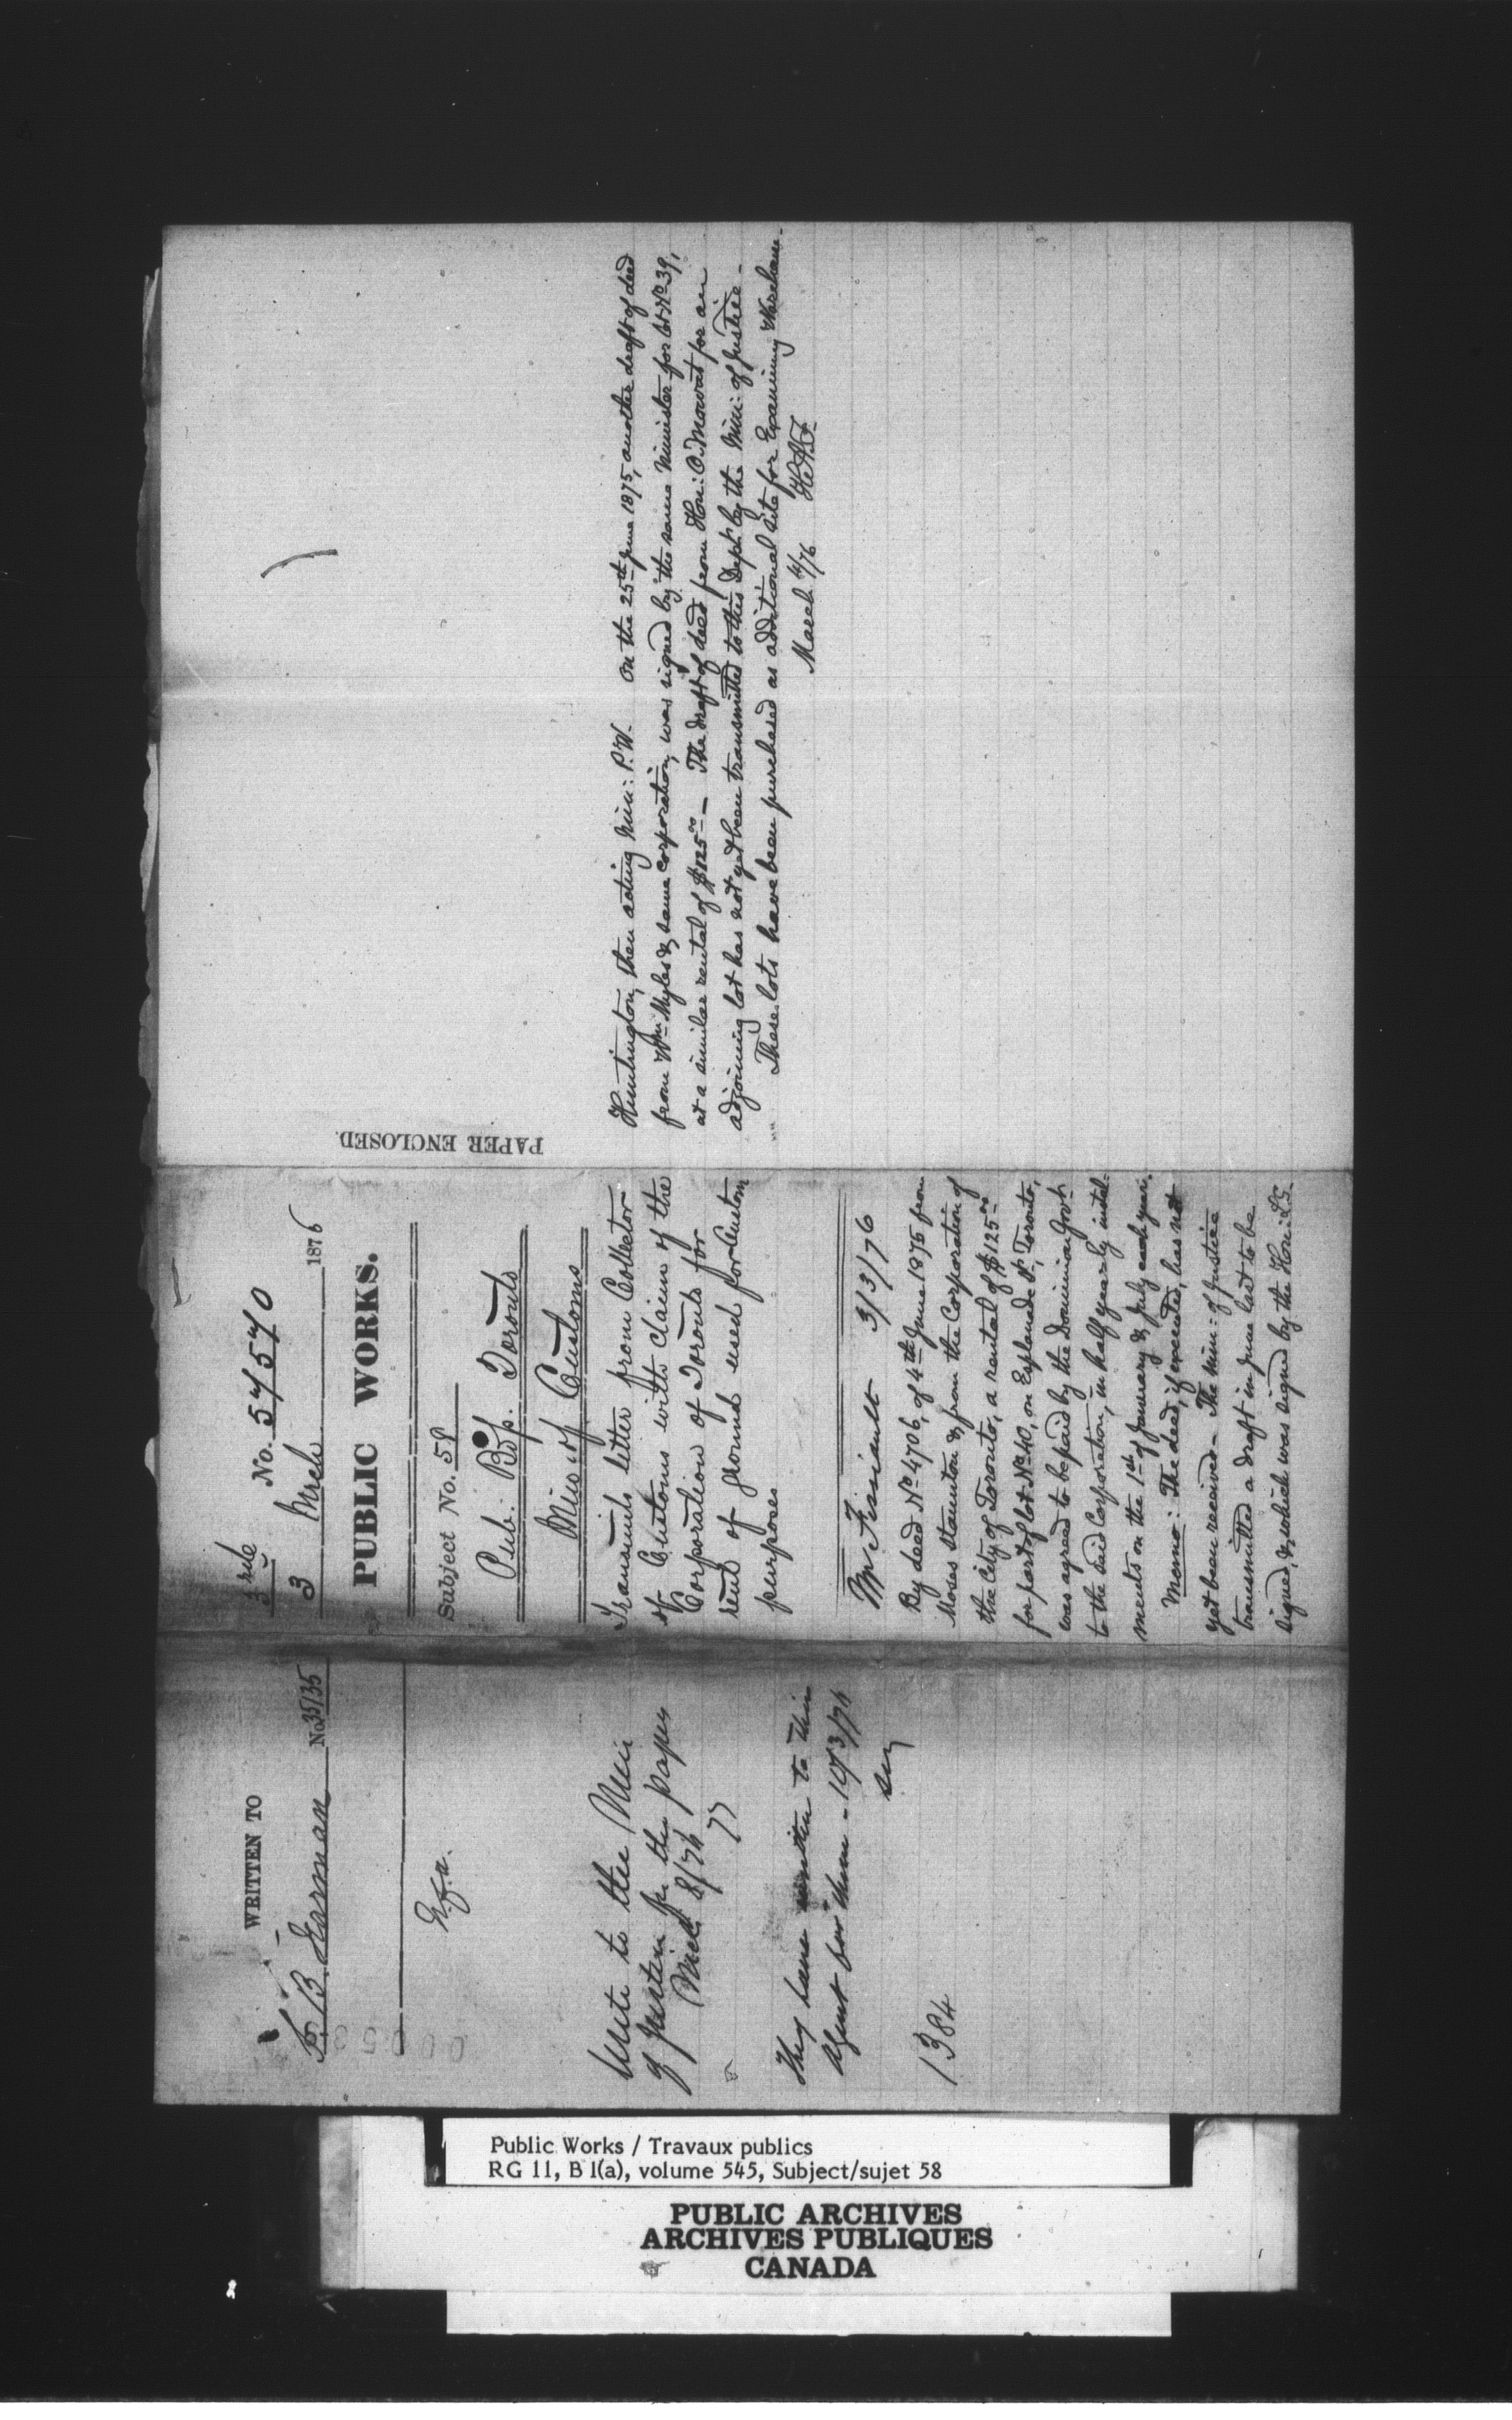 WRITTEN TO
B. Jarman No. 35135
Write to the Min
of Justice for the papers
Mch 8/76
They have written to their
Agent for them - 10/3/76
1384
No. 54570
3 Mrch 1876
PUBLIC WORKS.
Subject No. 58
Pub: Bdgs. Toronto
Min of Customs
Transmits letter from Collector
of Customs with claim of the
Corporation of Toronto for
rent of ground used for Custom
purposes
Mr Fissiault 3/3/76
By deed No 4706, of 4th June 1875 from
Moses Staunton & from the Corporation of
the City of Toronto, a rental of $125.00
for part of lot No 40, on Esplanade St. Toronto,
was agreed to be paid by the Dominion Govt
to the said Corporation, in half yearly instal-
ments on the 1st of January & July each year.
Memo: The deed, if executed, has not
yet been received - The Min: of Justice
transmitted a draft in June last to be
signed, & which was signed by the Hon: L.S.
Huntington, then acting Min: P.W. On the 25th June 1875, another draft of deed
from Wm Myles & same corporation, was signed by the same Minister for lot No 39,
at a similar rental of $125.00 - The draft of deed from Hon: O. Mowat for an
adjoining lot has not yet been transmitted to this Dept by the Min: of Justice -
These lots have been purchased as additional site for Examining Warehouse -
March 4/76
PAPER ENCLOSED.
Public Works / Travaux publics
RG 11, B 1(a), volume 545, Subject/sujet 58
PUBLIC ARCHIVES
ARCHIVES PUBLIQUES
CANADA